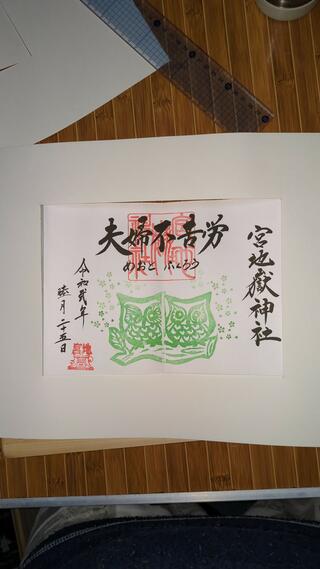 宮地嶽神社
夫婦不苦労
めおと ふくろう
令和弐年
睦月二十五日